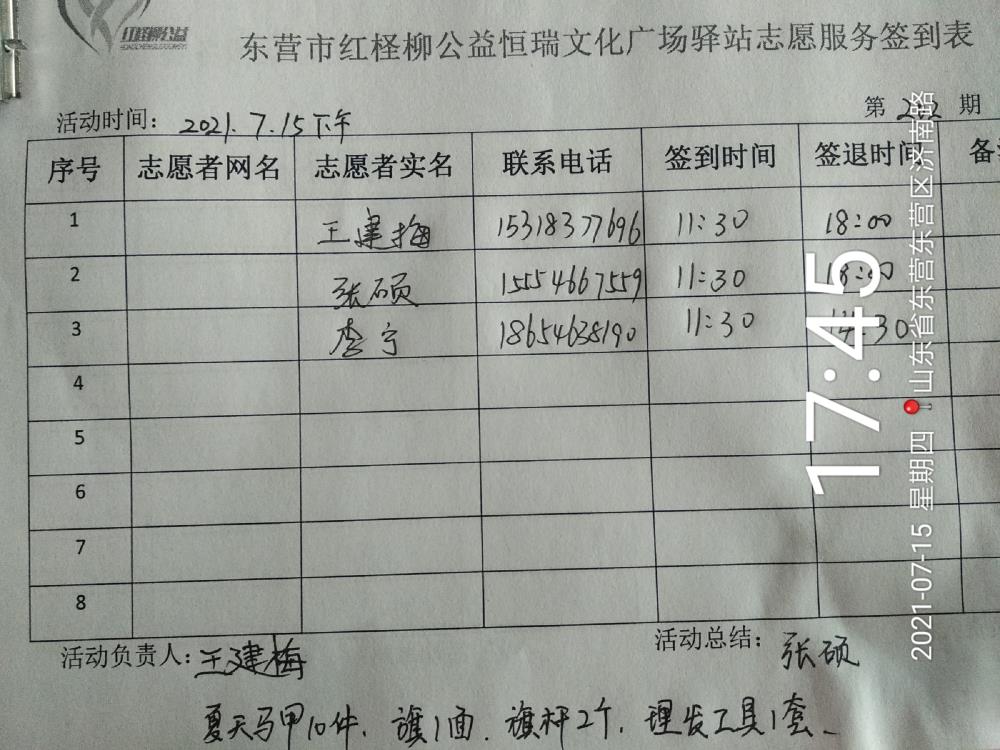 红柽柳公益
东营市红柽柳公益恒瑞文化广场驿站志愿服务签到表
活动时间: 2021.7.15下午 第 期
序号 志愿者网名 志愿者实名 联系电话 签到时间 签退时间
1 王建梅 15318377696 11:30 18:00
2 张硕 15554667559 11:30 18:00
3 李宁 18654638190 11:30 14:30
4
5
6
7
8
活动负责人: 王建梅 活动总结: 张硕
夏天马甲10件. 旗1面. 旗杆2个. 理发工具1套.
17:45
2021-07-15 星期四 山东省东营东营区济南路